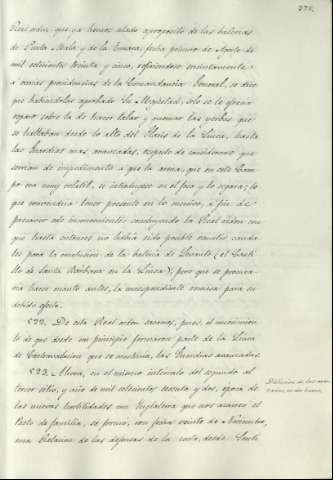 Real orden que ya hemos citado aproposito de las baterias
de Punta-Mala y de la Tunara, fecha primero de Agosto de
mil setecientos treinta y cinco, refiriendose sucintamente
á varias providencias de la Comandancia General, se dice
que habiendolas aprobado Su Magestad, solo se le ofrecia
reparo sobre la de hacer talar y quemar las yerbas que
se hallaban desde lo alto del Llano de la Linea, hasta
las Guardias mas avanzadas, respecto de considerarse que
servian de impedimento á que la arena, que en este Cam-
po era muy volátil, se introdugese en el foso y lo cegara; lo
que convendria tener presente en lo succesivo, á fin de
precaver este inconveniente: concluyendo la Real orden con
que hasta entonces no habia sido posible remitir cauda-
les para la conclusion de la bateria de Levante (el Casti-
llo de Santa Barbara en la Linea); pero que se procura-
ria hacer cuanto antes, la correspondiente remesa para su
debido efecto.
522. De esta Real orden sacamos, pues, el conocimien-
to de que desde un principio formaron parte de la Linea
de Contravalacion que se construia, las Guardias avanzadas.
523. Ahora, en el mismo intervalo del segundo al
tercer sitio, y año de mil setecientos sesenta y dos, época de
las nuevas hostilidades con Inglaterra que nos acarreó el
Pacto de familia, se formó, con fecha veinte de Noviembre,
una Relacion de las defensas de la costa, desde Santi